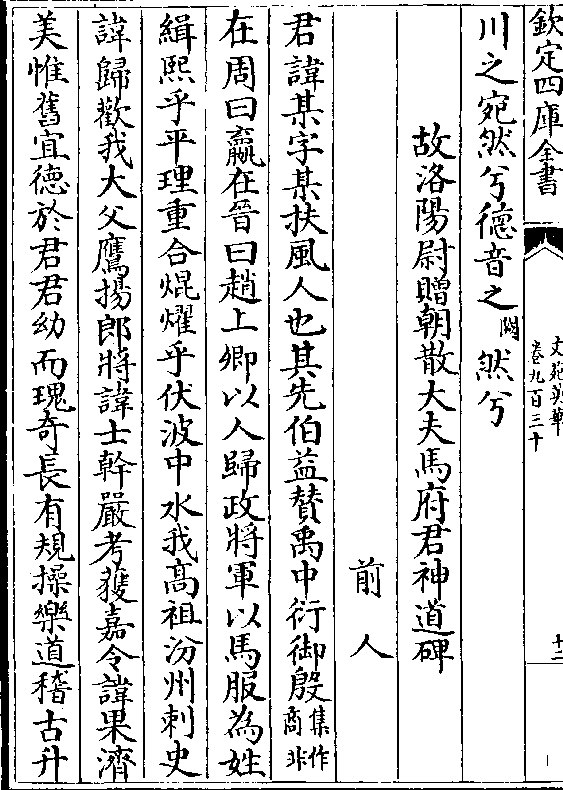 欽定四庫全書
文苑英華
卷九百三十
十二
川之宛然兮德音之闕然兮
故洛陽尉贈朝散大夫馬府君神道碑
前人
君諱某字某扶風人也其先伯益賛禹中衍御殷集作商非
在周曰嬴在晉曰趙上卿以人歸政將軍以馬服為姓
緝熙乎平理重合焜燿乎伏波中水我髙祖汾州刺史
諱歸歡我大父鷹揚郎將諱士幹嚴考獲嘉令諱果濟
美惟舊宜德於君君幼而瑰奇長有規操樂道稽古升